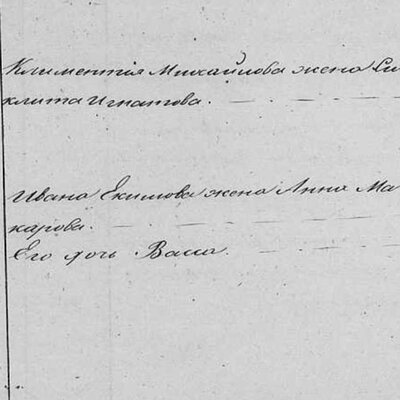 Климентія Михайлова жена Си
клита Игнатова.
Ивана Екимова жена Анна Ма
карова.
Его дочь Васса.